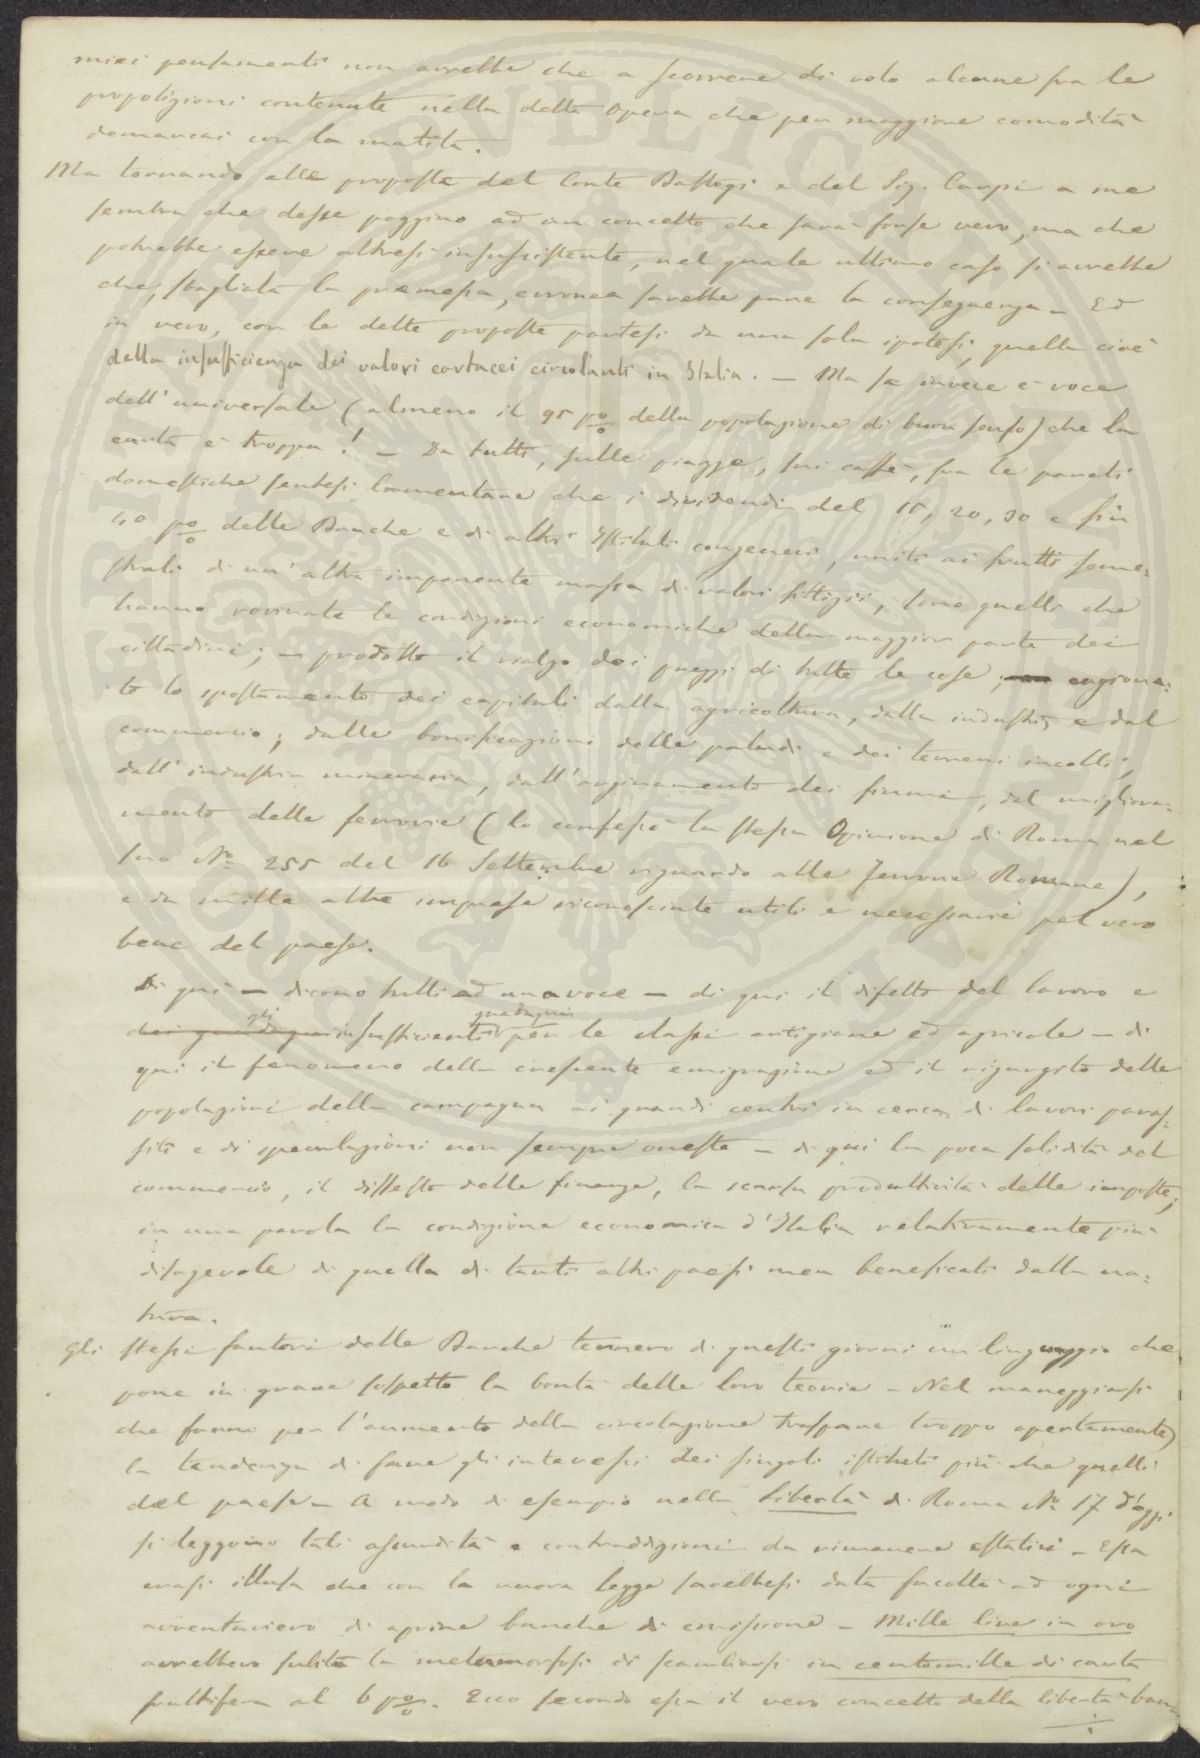 miei pensamenti non avrebbe che a scorrere di volo alcune fra le
proposizioni contenute nella detta Opera che per maggiore comodità
demarcai con la matita.
Ma tornando alle proposte del Conte Bastogi e del Sig. Carpi a me
sembra che desse poggino ad un concetto che sarà forse vero, ma che
potrebbe essere altresì insussistente, nel quale ultimo caso si avrebbe
che, sbagliata la premessa, erronea sarebbe pure la conseguenza – Ed
in vero, con le dette proposte partesi da una sola ipotesi, quella cioè
della insufficienza dei valori cartacei circolanti in Italia. – Ma se invece è voce
dell'universale (almeno il 95 p% della popolazione di buon senso) che la
carta è troppa! – Da tutti, sulle piazze, sui caffè, fra le pareti
domestiche sentesi lamentare che i dividendi del 15, 20, 30 e fin
40 p% delle Banche e di altri Istituti congeneri, uniti ai frutti seme:
strali di un'altra imponente massa di valori fittizii, sono quelli che
hanno rovinate le condizioni economiche della maggior parte dei
cittadini; – prodotto il rialzo dei prezzi di tutte le cose; cagiona:
to lo spostamento dei capitali dalla agricoltura, dalla industria, e dal
commercio; dalle bonificazioni delle paludi e dei terreni incolti,
dall'industria mineraria, dall'arginamento dei fiumi, dal migliora:
mento delle ferrovie (lo confessò la stessa Opinione di Roma nel
suo No 255 del 16 Settembre riguardo alle Ferrovie Romane),
e da mille altre imprese riconosciute utili e necessarie pel vero
bene del paese.
Di qui – dicono tutti ad una voce – di qui il difetto del lavoro e
gli guadagni
dei guadagni insufficienti per le classi artigiane ed agricole – di
qui il fenomeno della crescente emigrazione ed il rigurgito delle
popolazioni della campagna ai grandi centri in cerca di lavori paras:
siti e di speculazioni non sempre oneste – di qui la poca solidità del
commercio, il dissesto delle finanze, la scarsa produttività delle imposte;
in una parola la condizione economica d'Italia relativamente più
disagevole di quella di tanti altri paesi men beneficati dalla na:
tura.
Gli stessi fautori delle Banche tennero di questi giorni un linguaggio che
pone in grave sospetto la bontà delle loro teorie – Nel maneggiarsi
che fanno per l'aumento della circolazione traspare troppo apertamente
la tendenza di fare gli interessi dei singoli istituti più che quelli
del paese – A modo di esempio nella Libertà di Roma No 17 d'oggi
si leggono tali assurdità e contraddizioni da rimanere estatici – Essa
erasi illusa che con la nuova legge sarebbesi data facoltà ad ogni
avventuriero di aprire banche di emissione – Mille lire in oro
avrebbero subita la metamorfosi di scambiarsi in centomille di carta
fruttifera al 6 p%. Ecco secondo essa il vero concetto della libertà ban: